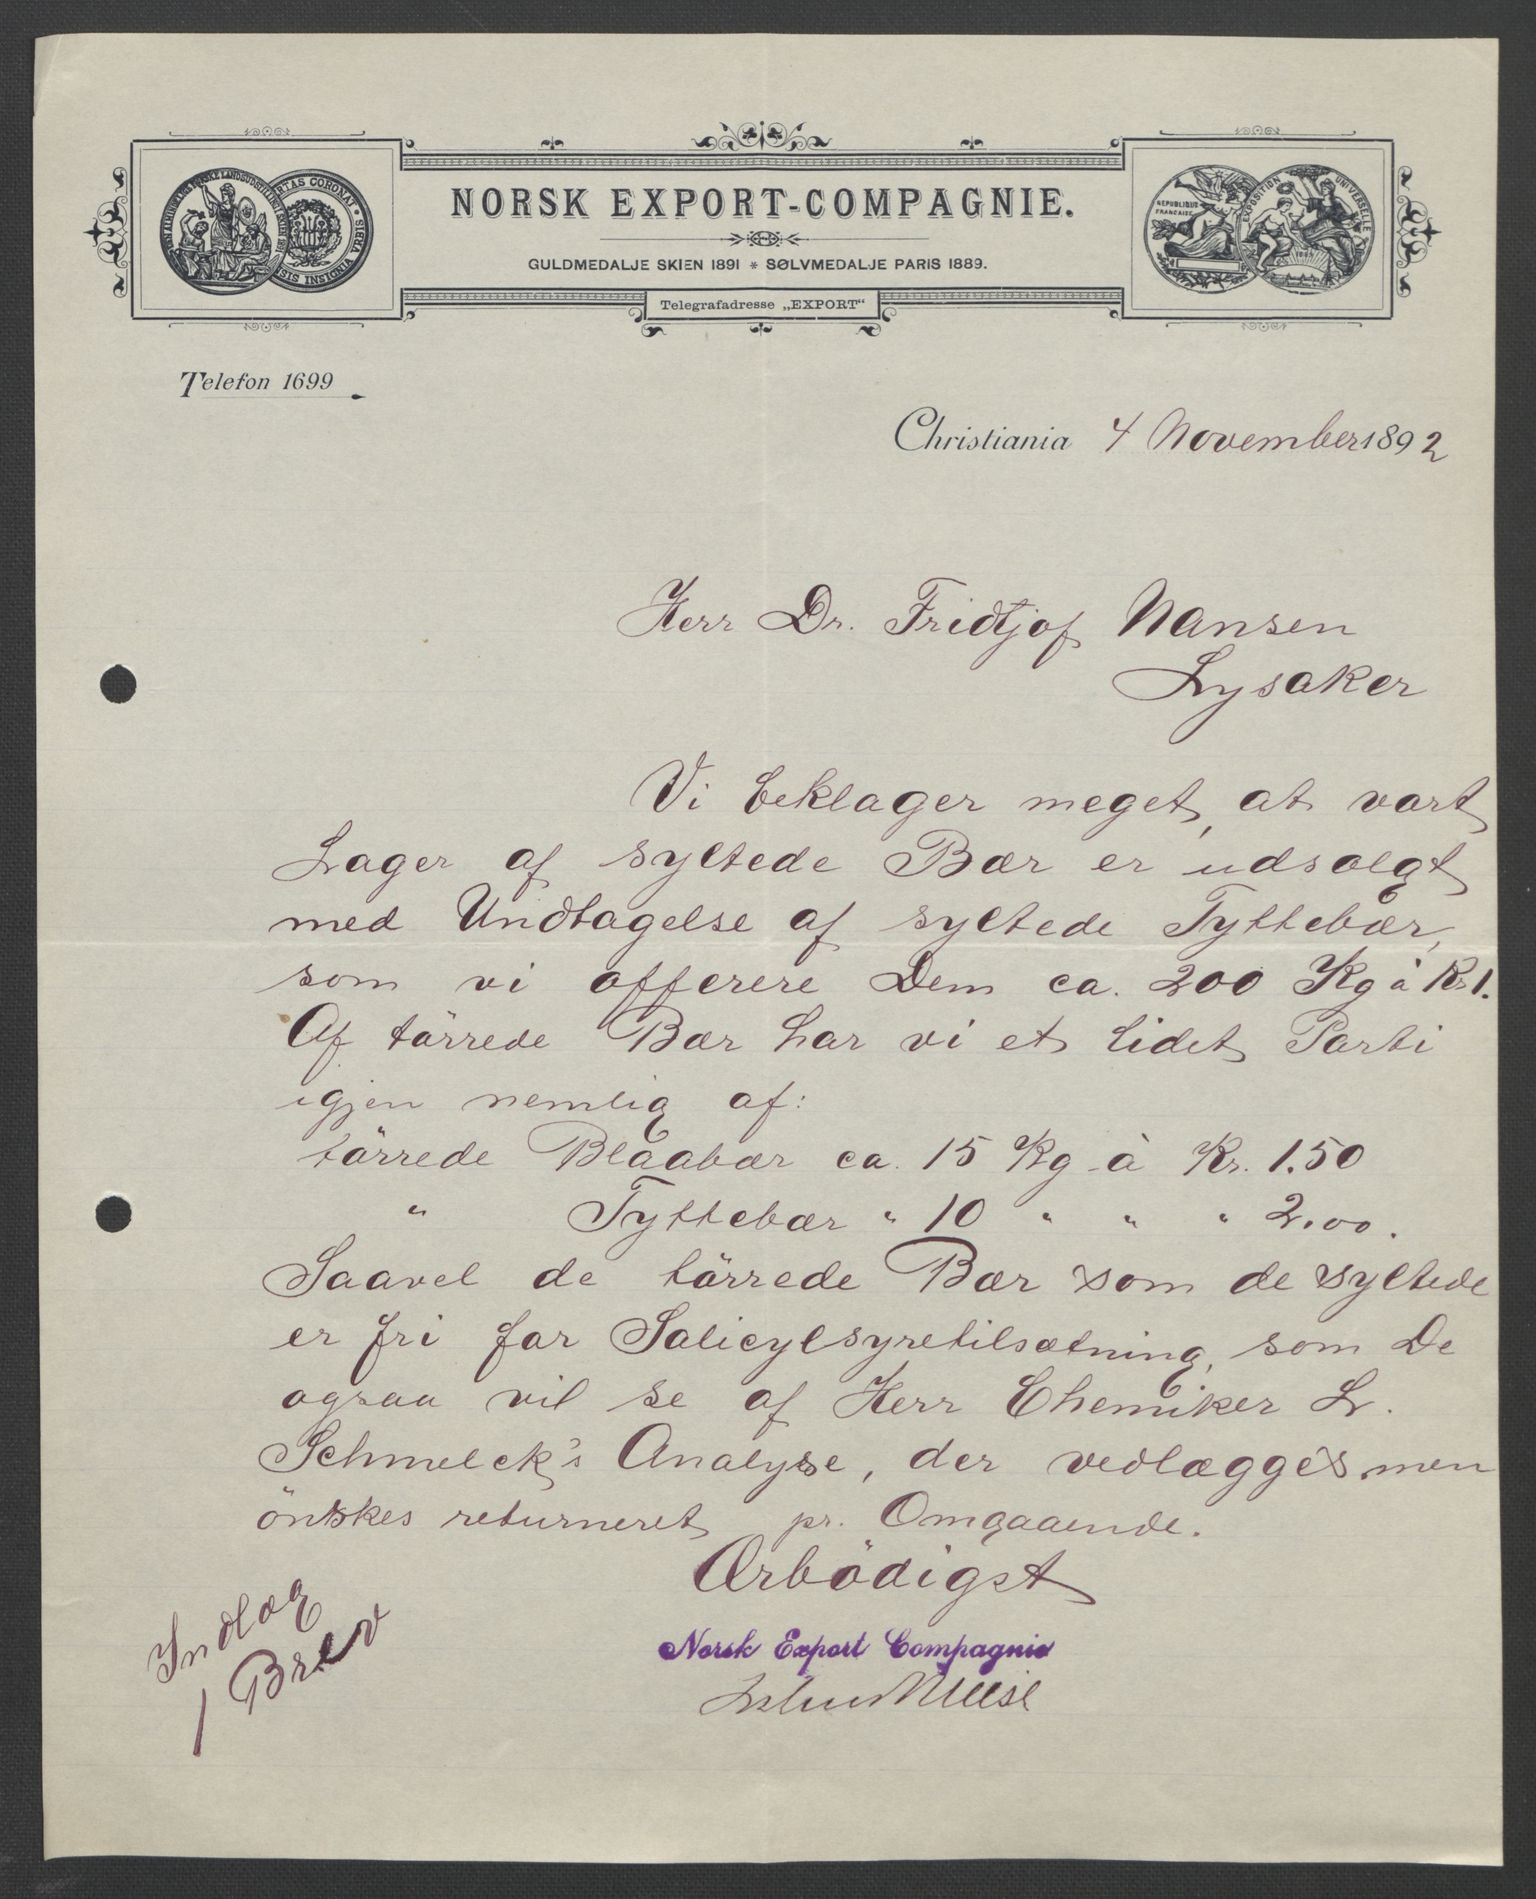 NORSK EXPORT-COMPAGNIE.
GULDMEDALJE SKIEN 1891 * SØLVMEDALJE PARIS 1889.
Telegrafadresse „EXPORT“
REPUBLIQUE FRANCAISE
EXPOSITION UNIVERSELLE
Telefon 1699
Christiania 4 November 1892
Herr Dr. Fridtjof Nansen
Lysaker
Vi beklager meget, at vart
Lager af syltede Bær er udsolgt
med Undtagelse af syltede Tyttebær,
som vi offerere Dem ca. 200 Kg à Kr 1.
Af törrede Bær har vi et lidet Parti
igjen nemlig af:
törrede Blaabær ca. 15 Kg à Kr. 1.50
" Tyttebær " 10 " " " 2.00.
Saavel de törrede Bær som de syltede
er fri for Salicylsyretilsætning, som De
ogsaa vil se af Herr Chemiker L.
Schmelck's Analyse, der vedlægges, men
önskes returneret pr. Omgaaende.
Ærbödigst
Norsk Export Compagnie
Indlæg
1 Brev